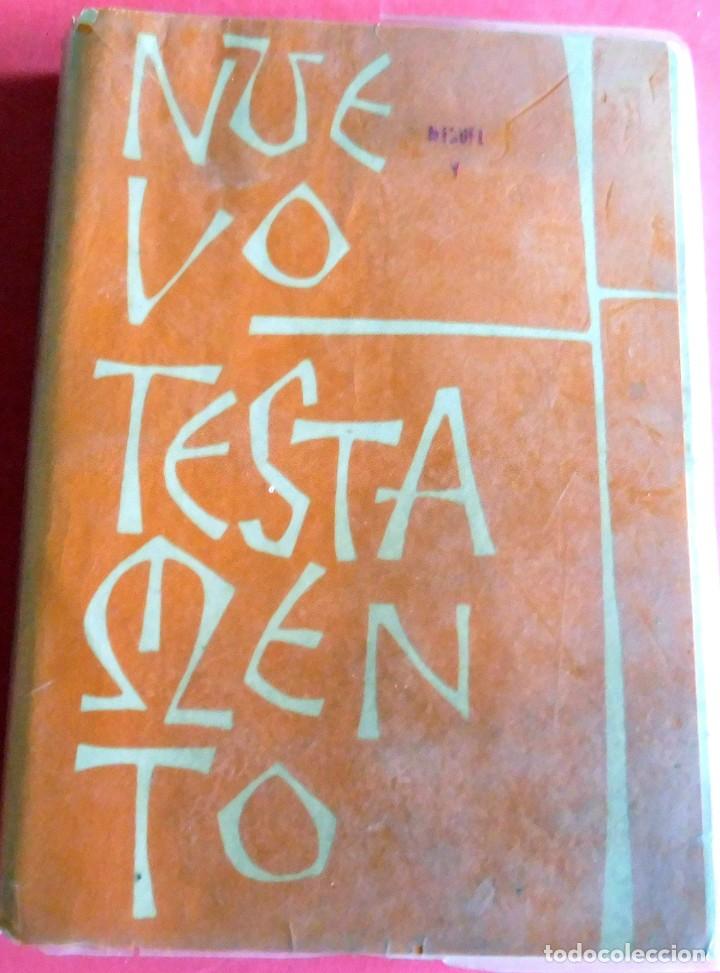 NUE
VO
TESTA
MEN
TO
todocoleccion.net